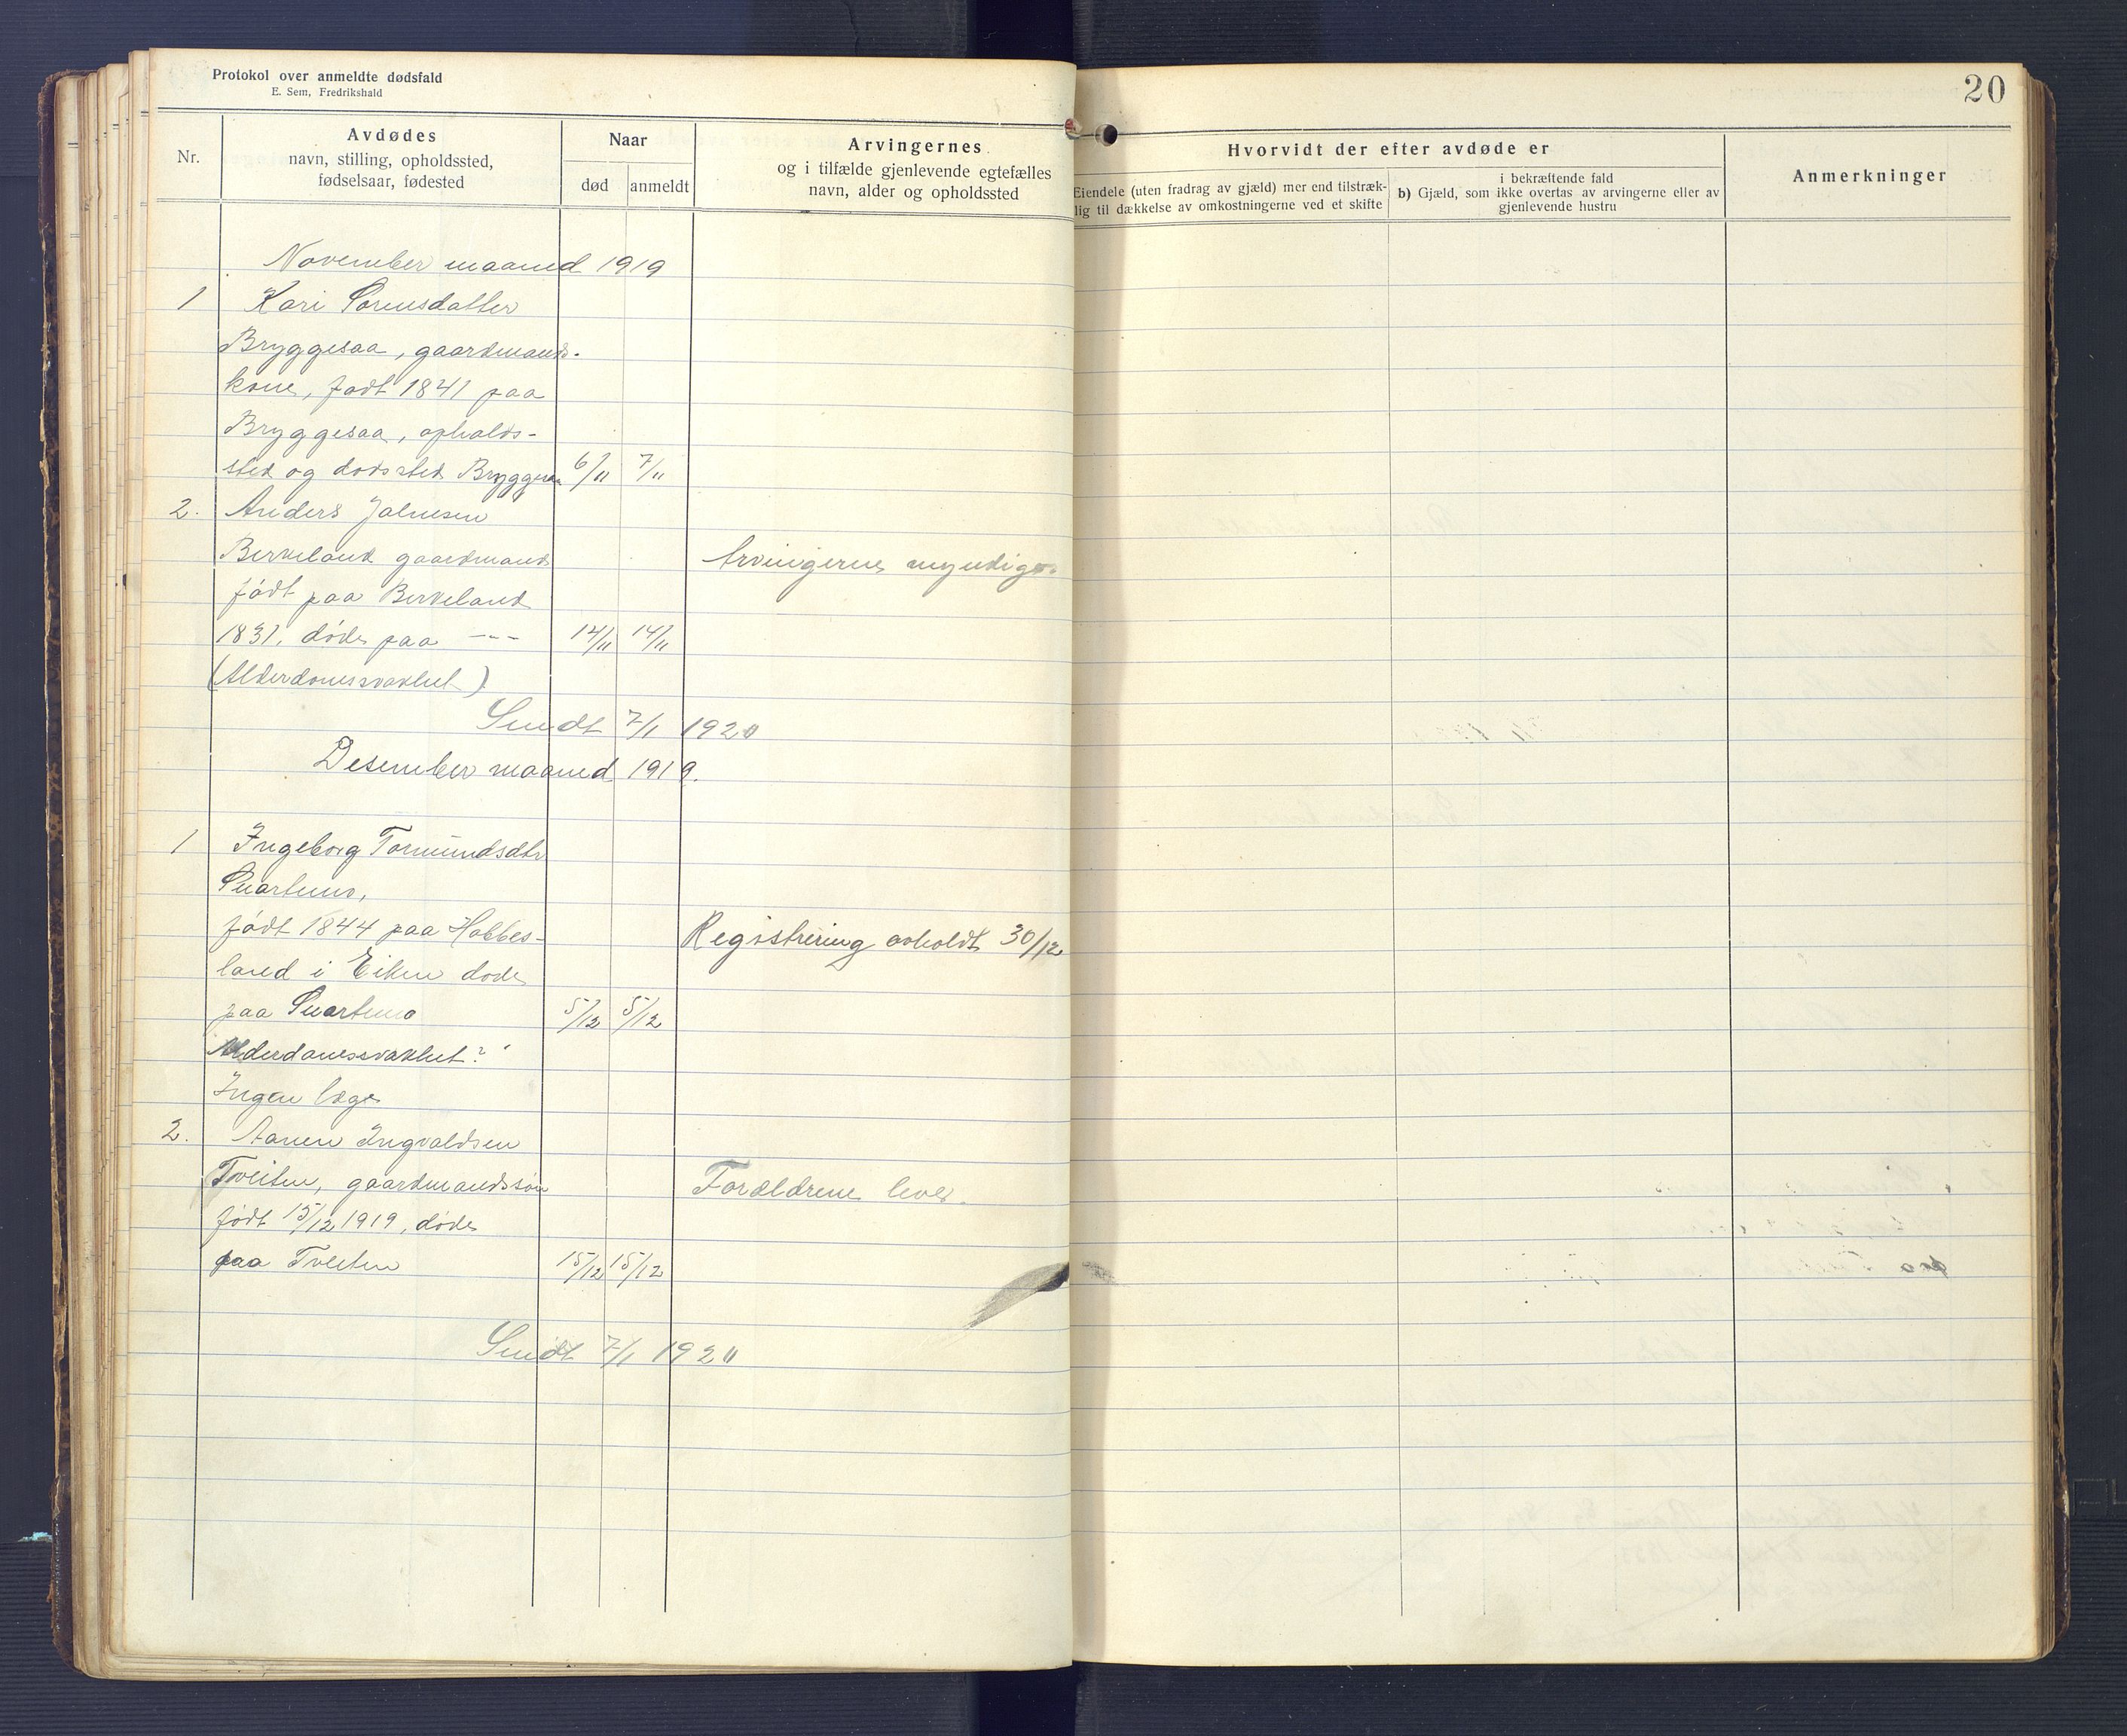 Protokol over anmeldte dødsfald
E. Sem, Fredrikshald
20
Nr.
Avdødes
navn, stilling, opholdssted,
fødselsaar, fødested
Naar
død
anmeldt
Arvingernes
og i tilfælde gjenlevende egtefælles
navn, alder og opholdssted
Hvorvidt der efter avdøde er
Eiendele (uten fradrag av gjæld) mer end tilstræk-
lig til dækkelse av omkostningerne ved et skifte
i bekræftende fald
b) Gjæld, som ikke overtas av arvingerne eller av
gjenlevende hustru
Anmerkninger
November maaned 1919
1 Kari Sørensdatter
Bryggesaa, gaardmands-
kone, født 1841 paa
Bryggesaa, opholds-
sted og dødssted Bryggesaa 6/11 7/11
2. Anders Johnesen
Birkeland gaardmand Arvingerne myndige.
født paa Birkeland
1831. døde paa --- 14/11 14/11
(Alderdomssvakhet)
Sendt 7/1 1920
Desember maaned 1919.
1 Ingeborg Tormundsdtr
Snartemo,
født 1844 paa Hobbes- Registrering avholdt 30/12
land i Eiken døde
paa Snartemo 5/12 5/12
Alderdomssvakhet?
Ingen læge
2. Aanen Ingvaldsen
Tveiten, gaardmandssøn Forældrene lever.
født 15/12 1919, døde
paa Tveiten 15/12 15/12
Sendt 7/1 1920